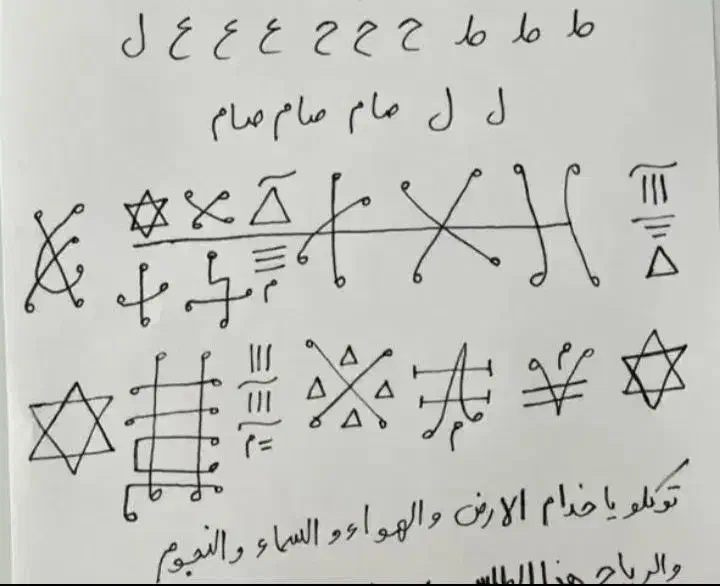 ط ط ط ح ح ح ع ع ع ل
ل ل صام صام صام
م
م
م
م =
توكلو يا خدام الارض والهواء والسماء والنجوم
والرياح هذا